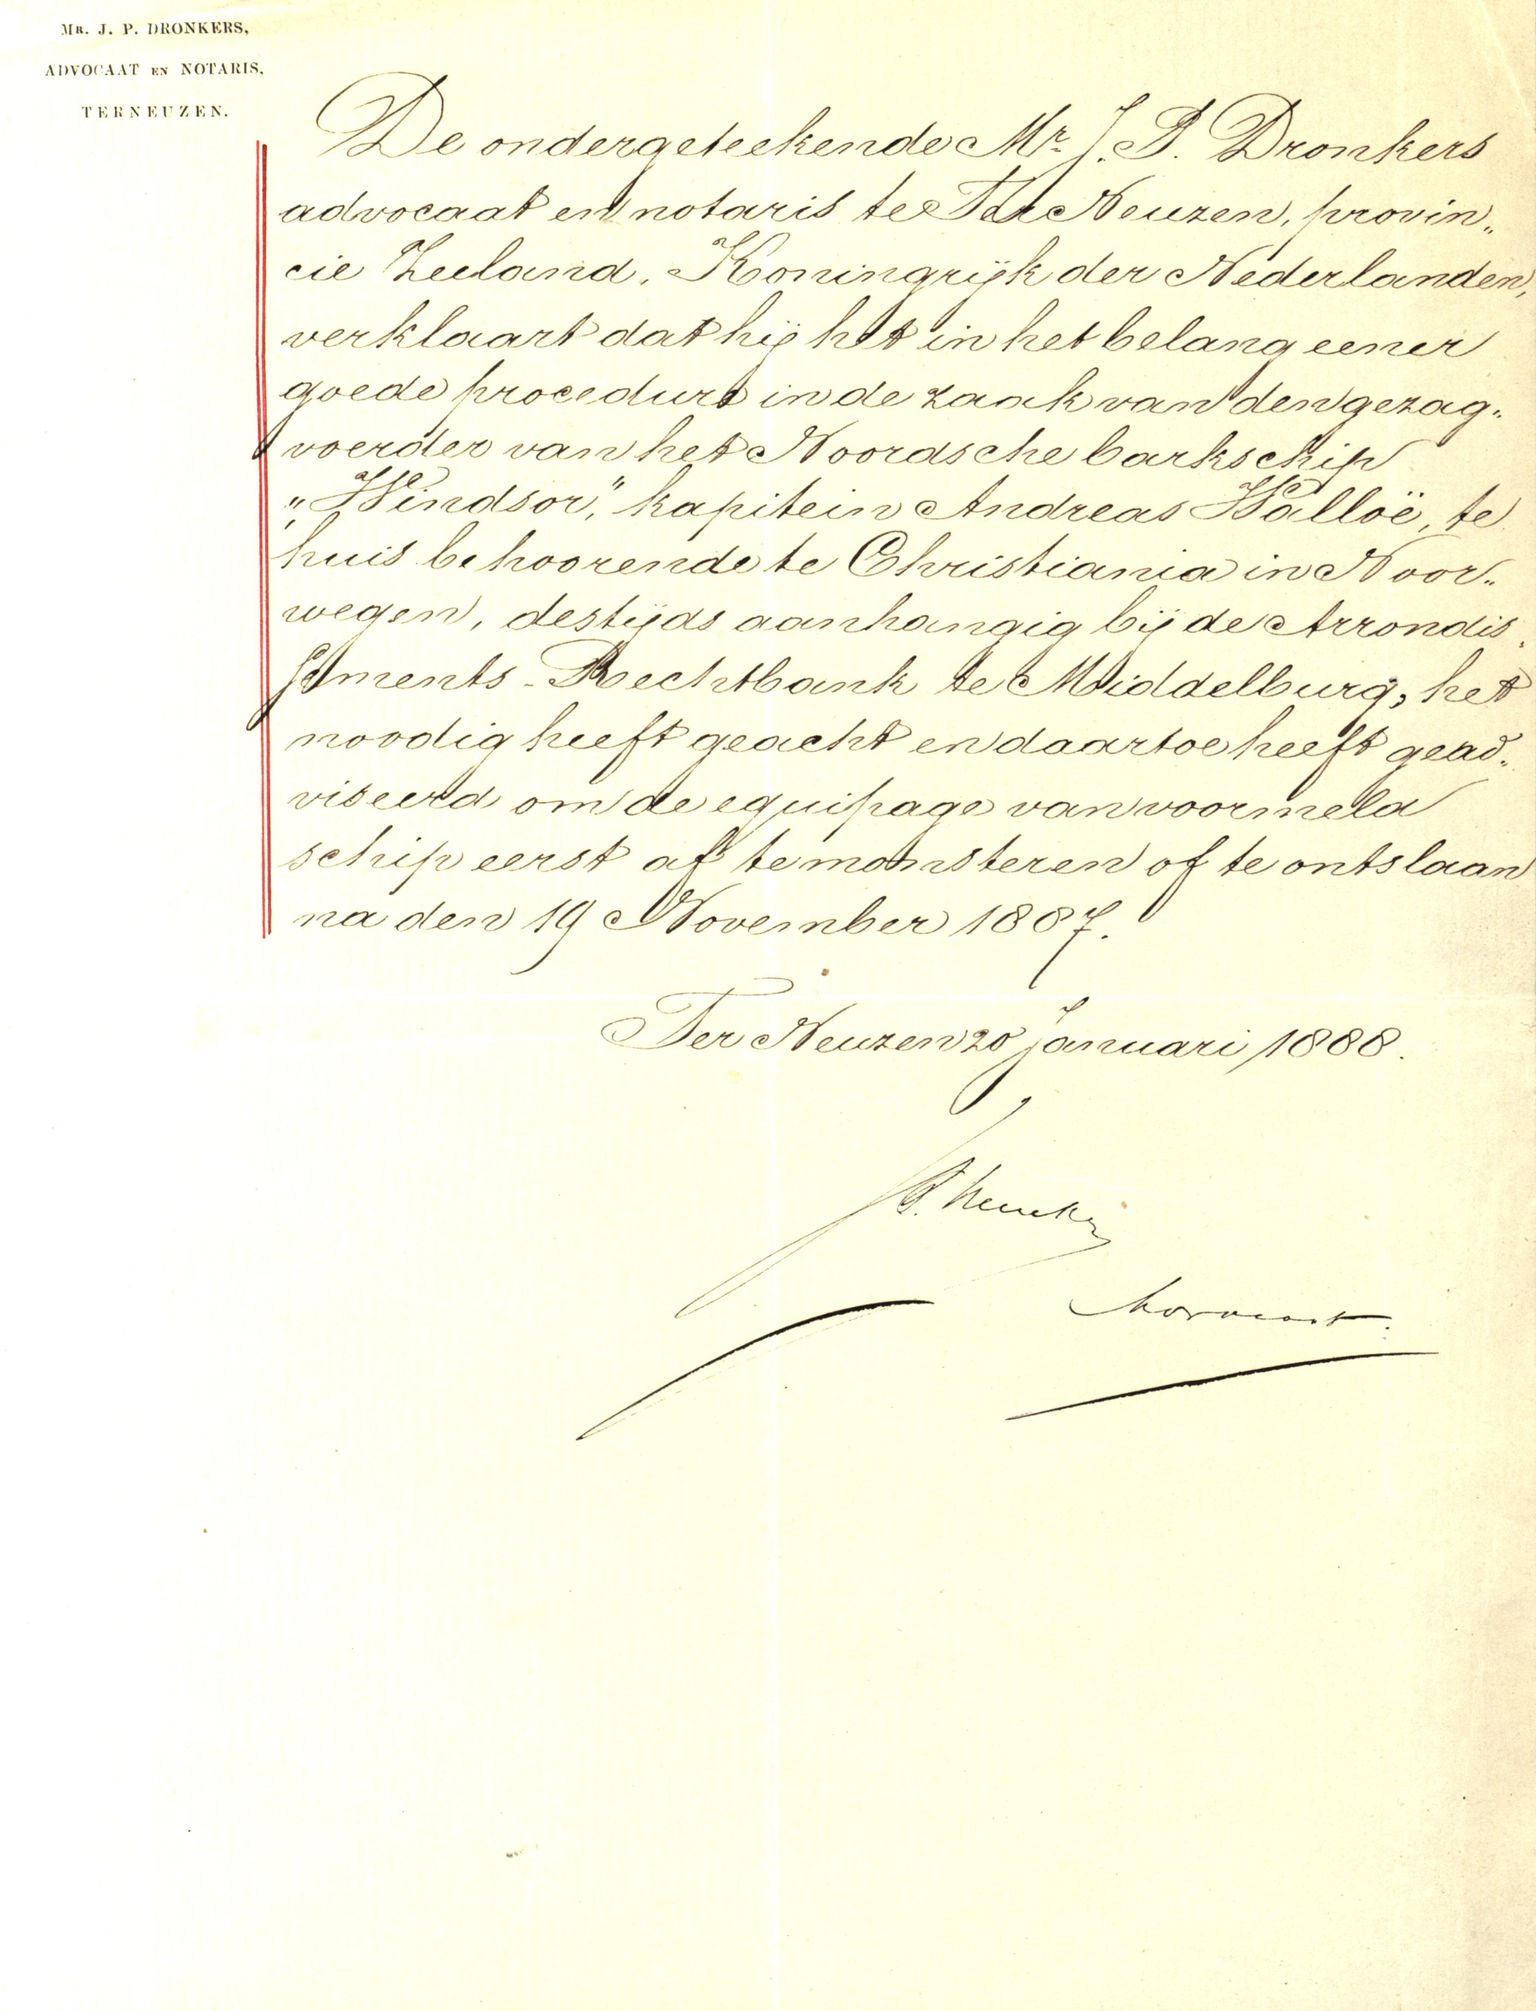 MR. J. P. DRONKERS,
ADVOCAAT EN NOTARIS,
TERNEUZEN.
De ondergeteekende Mr. J. P. Dronkers
advocaat en notaris te Ter Neuzen, provin„
cie Zeeland, Koningrijk der Nederlanden,
verklaart dat hij het in het belang eener
goede procedure in de zaak van den gezag„
voerder van het Noordsche barkschip
„Windsor," kapitein Andreas Walloë, te
huis behoorende te Christiania in Noor„
wegen, destijds aanhangig bij de Arrondis„
sements-Rechtbank te Middelburg, het
noodig heeft geacht en daartoe heeft gead„
viseerd om de equipage van voormeld
schip eerst af te monsteren of te ontslaan
na den 19 November 1887.
Ter Neuzen 20 Januari 1888.